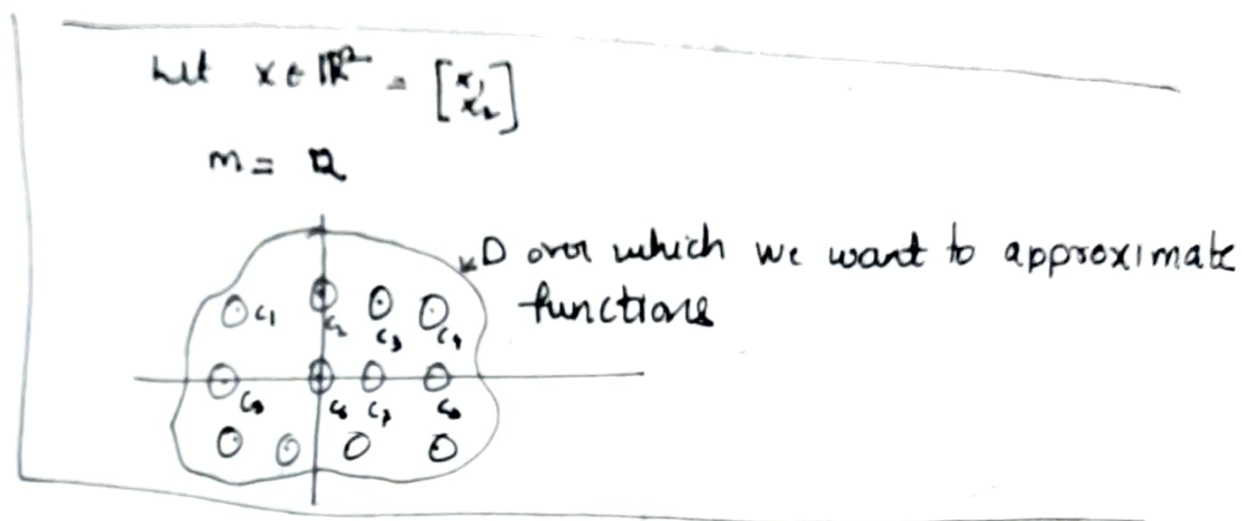 Let x ∈ ℝ² = [x₁ x₂]
m =
D over which we want to approximate
functions
c₁ c₂ c₃ c₄
c₅ c₆ c₇ c₈